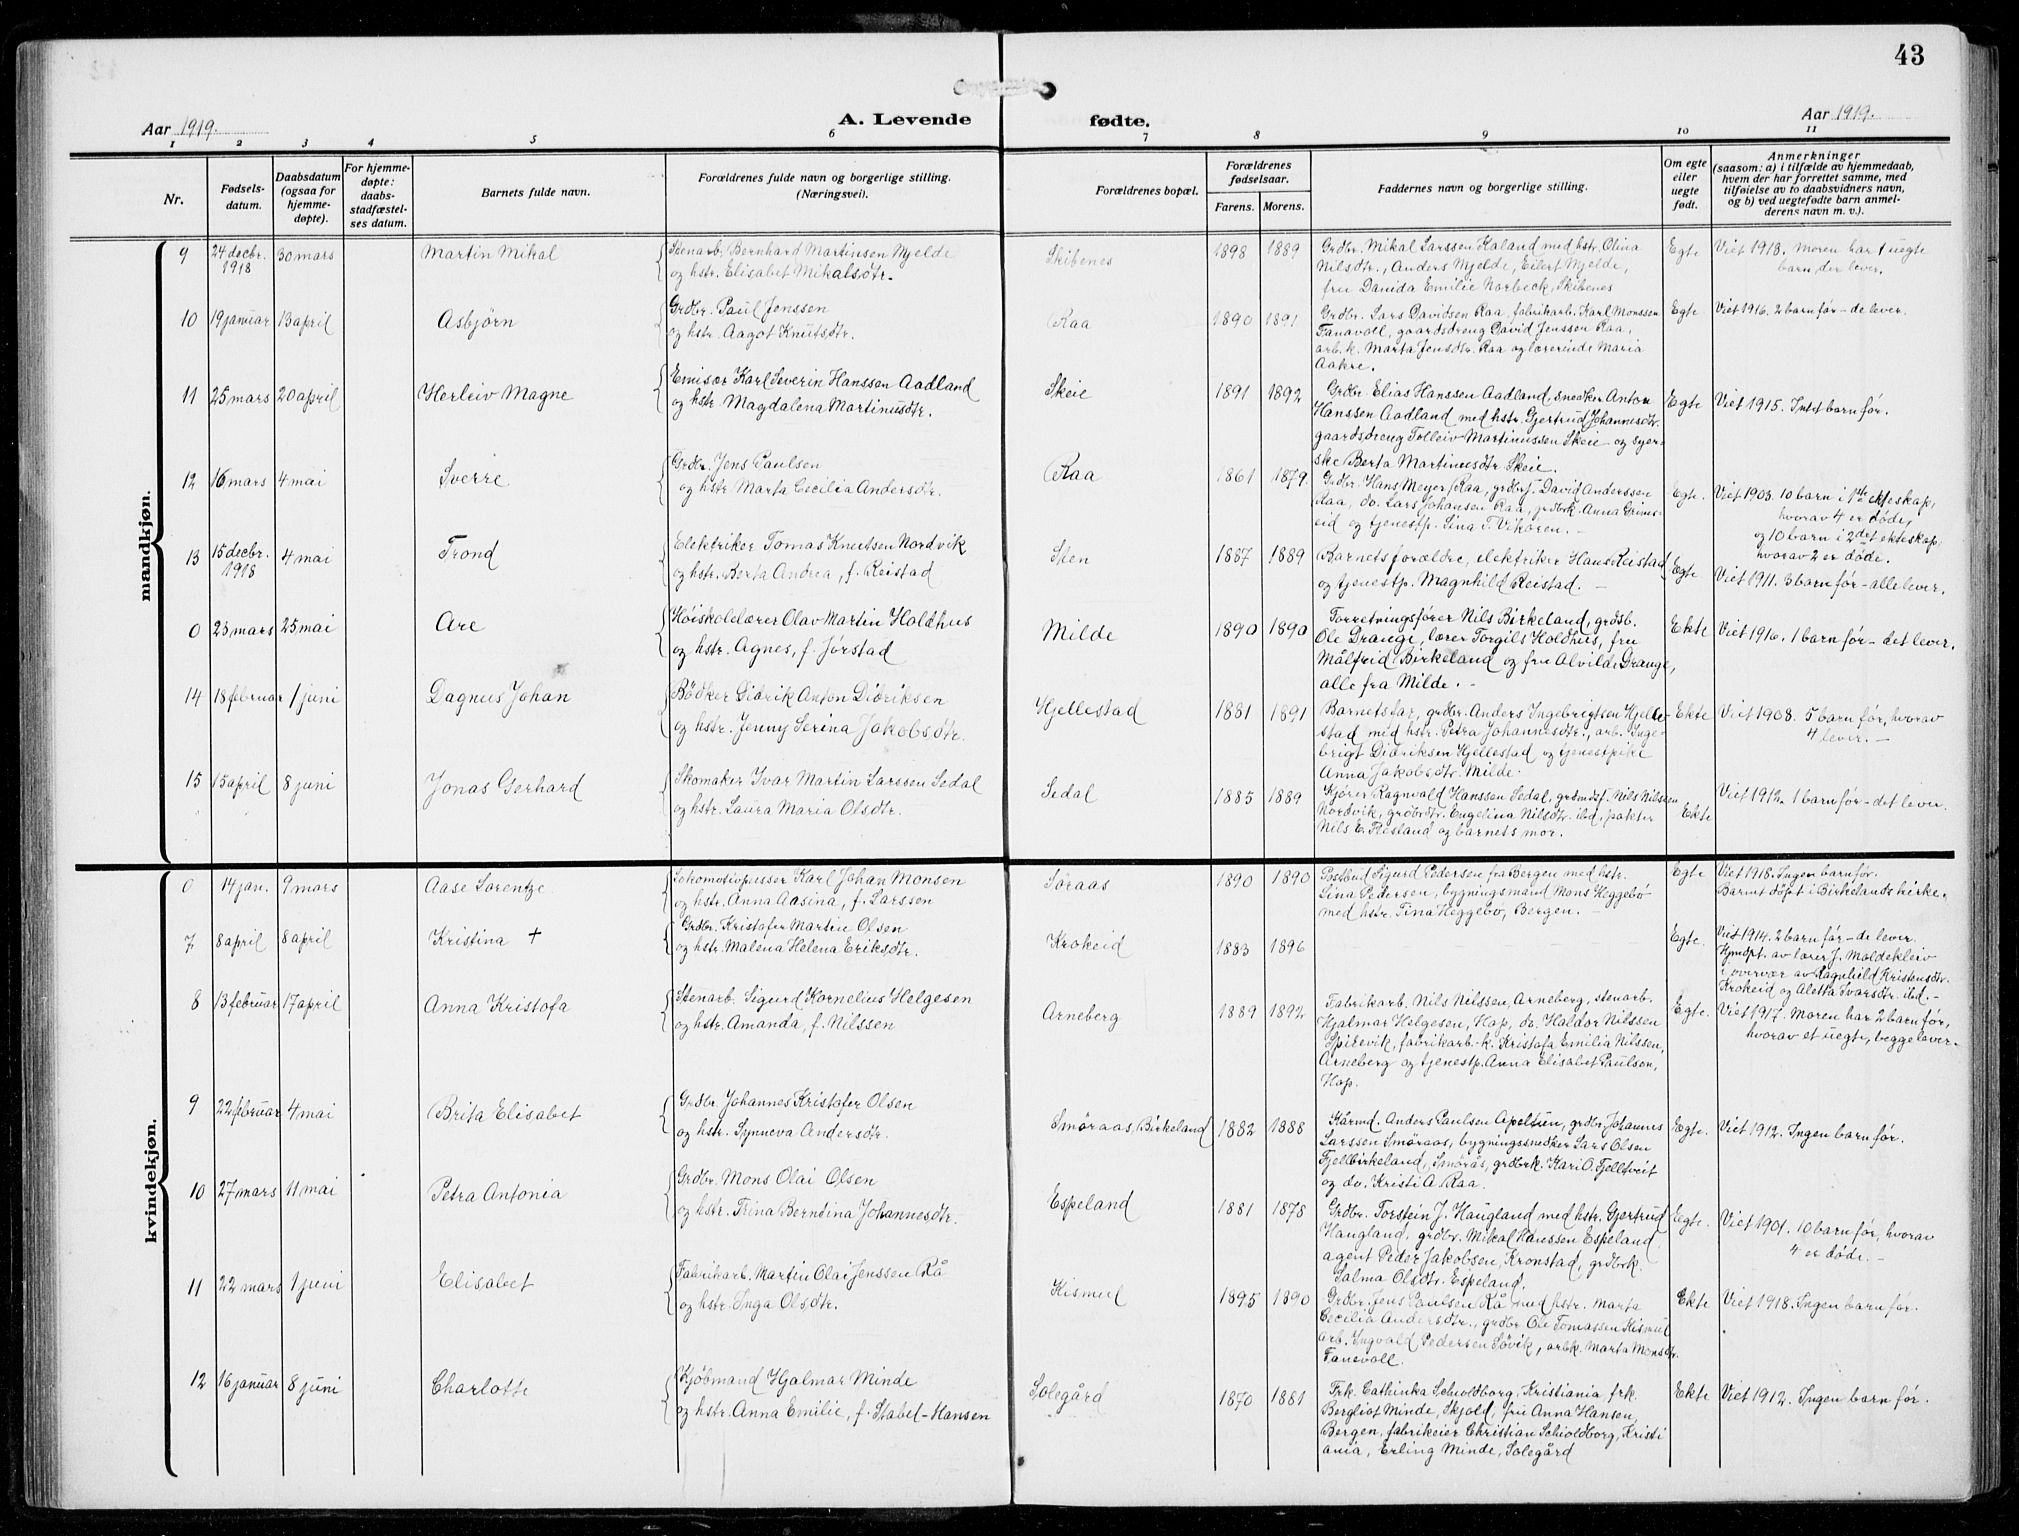 43
Aar 1919.
A. Levende fødte.
Aar 1919.
1 2 3 4 5 6 7 8 9 10 11
Nr.
Fødsels-
datum.
Daabsdatum
(ogsaa for
hjemme-
døpte).
For hjemme-
døpte:
daabs-
stadfæstel-
ses datum.
Barnets fulde navn.
Forældrenes fulde navn og borgerlige stilling.
(Næringsvei).
Forældrenes bopæl.
Forældrenes
fødselsaar.
Farens. Morens.
Faddernes navn og borgerlige stilling.
Om egte
eller
uegte
født.
Anmerkninger
(saasom: a) i tilfælde av hjemmedaab,
hvem der har forrettet samme, med
tilføielse av to daabsvidners navn,
og b) ved uegtefødte barn anmel-
derens navn m. v.).
mandkjøn.
9 24 decbr. 1918 30 mars Martin Mikal
Stenarb. Bernhard Martinsen Mjelde
og hstr. Elisabet Mikalsdtr.
Skibenes 1898 1889
Grdbr. Mikal Larssen Kaland med hstr. Olina
Nilsdtr., Anders Mjelde, Eilert Mjelde,
fru Davida Emilie Norbeck, Skibenes
Egte
Viet 1918. Moren har 1 uegte
barn, der lever.
10 19 januar 13 april Asbjørn
Grdbr. Paul Jenssen
og hstr. Aagot Knutsdtr.
Raa 1890 1891
Grdbr. Lars Davidsen Raa, fabrikarb. Karl Monssen
Fanavoll, gaardsdreng David Jenssen Raa,
arb. k. Marta Jensdtr. Raa og lærerinde Maria
Aakre.
Egte
Viet 1916. 2 barn før - de lever.
11 25 mars 20 april Herleiv Magne
Emisær Karl Severin Hanssen Aadland
og hstr. Magdalena Martinusdtr.
Skeie 1891 1892
Grdbr. Elias Hanssen Aadland, snedker Anton
Hanssen Aadland med hstr. Gjertrud Johannesdtr.
gaardsdreng Tolleiv Martinussen Skeie og syer-
ske Berta Martinusdtr. Skeie.
Egte
Viet 1915. Intet barn før.
12 16 mars 4 mai Sverre
Grdbr. Jens Paulsen
og hstr. Marta Cecilia Andersdtr.
Raa 1861 1879
Grdbr. Hans Meyer Raa, grdbrf. David Anderssen
Raa, do. Lars Johansen Raa, grdbrk. Anna Grims-
eid og tjenestp. Lina T. Vikøren. -
Egte.
Viet 1903. 10 barn i 1ste ekteskap,
hvorav 4 er døde,
og 10 barn i 2det ekteskap,
hvorav 2 er døde.
13 15 decbr. 1918 4 mai Trond
Elektriker Tomas Knutsen Nordvik
og hstr. Berta Andrea, f. Reistad
Sten 1887 1889
Barnets forældre, elektriker Hans Reistad
og tjenestp. Magnhild Reistad. -
Egte
Viet 1911. 3 barn før - alle lever.
0 23 mars 25 mai Are
Høiskolelærer Olav Martin Holdhus
og hstr. Agnes, f. Jørstad
Milde 1890 1890
Forretningsfører Nils Birkeland, grdsb.
Ole Drange, lærer Torgils Holdhus, fru
Målfrid Birkeland og fru Alvilde Drange,
alle fra Milde. -
Ekte
Viet 1916. 1 barn før - det lever.
14 18 februar 1 juni Dagnus Johan
Bødker Didrik Anton Didriksen
og hstr. Jenny Serina Jakobsdtr.
Hjellestad 1881 1891
Barnets far, grdbr. Anders Ingebrigtsen Hjelle-
stad med hstr. Petra Johannesdtr., arb. Inge-
brigt Didriksen Hjellestad og tjenestpike
Anna Jakobsdtr. Milde.
Ekte
Viet 1908. 5 barn før, hvorav
4 lever. -
15 15 april 8 juni Jonas Gerhard
Skomaker Ivar Martin Larssen Sedal
og hstr. Laura Maria Olsdtr.
Sedal 1885 1889
Kjører Ragnvald Hanssen Sedal, grdmdsf. Nils Nilssen
Nordvik, grdbrdtr. Engelina Nilsdtr. ibd., pakter
Nils E. Røsland og barnets mor.
Ekte
Viet 1912. 1 barn før - det lever.
kvindekjøn.
0 14 jan. 9 mars Aase Lorentze
Lokomotivpusser Karl Johan Monsen
og hstr. Anna Aasina, f. Larssen
Søraas 1890 1890
Postbud Sigurd Pedersen fra Bergen med hstr.
Lina Pedersen, bygningsmand Mons Heggebø
med hstr. Tina Heggebø, Bergen. -
Egte
Viet 1918. Ingen barn før.
Barnet døpt i Birkelands kirke.
7 8 april 8 april Kristina +
Grdbr. Kristofer Martin Olsen
og hstr. Malena Helena Eriksdtr.
Krokeid 1883 1896
Egte.
Viet 1914. 2 barn før - de lever.
Hjmdpt. av lærer J. Moldekleiv
i overvær av Ragnhild Kristensdtr.
Krokeid og Aletta Ivarsdtr. ibd. -
8 13 februar 17 april Anna Kristofa
Stenarb. Sigurd Kornelius Helgesen
og hstr. Amanda, f. Nilssen
Arneberg 1889 1892
Fabrikarb. Nils Nilssen, Arneberg, stenarb.
Hjalmar Helgesen, Hop, do. Haldor Nilssen
Spilevik, fabrikarb.-k. Kristofa Emilia Nilssen,
Arneberg og tjenestp. Anna Elisabet Paulson,
Hop.
Egte.
Viet 1917. Moren har 2 barn før,
hvorav et uegte, begge lever.
9 22 februar 4 mai Brita Elisabet
Grdbr. Johannes Kristofer Olsen
og hstr. Synneva Andersdtr.
Smøraas, Birkeland 1882 1888
Kårmd. Anders Paulsen Apeltun, grdbr. Johannes
Larssen Smøraas, bygningssnedker Lars Olsen
Fjellbirkeland, Smørås, grdbrk. Kari O. Fjelltveit
og do. Kristi A. Raa.
Egte.
Viet 1912. Ingen barn før.
10 27 mars 11 mai Petra Antonia
Grdbr. Mons Olai Olsen
og hstr. Trina Berndina Johannesdtr.
Espeland 1881 1878
Grdbr. Torstein J. Haugland med hstr. Gjertrud
Haugland, grdbr. Mikal Hanssen Espeland,
agent Peder Jakobsen, Kronstad, grdbrk.
Salma Olsdtr. Espeland.
Egte.
Viet 1901. 10 barn før, hvorav
4 er døde. -
11 22 mars 1 juni Elisabet
Fabrikarb. Martin Olai Jenssen Rå
og hstr. Inga Olsdtr.
Kismul 1895 1890
Grdbr. Jens Paulsen Rå med hstr. Marta
Cecilia Andersdtr., grdbr. Ole Tomassen Kismul
arb. Ingvald Pedersen Søvik, arbk. Marta Monsdtr.
Fanevoll.
Ekte
Viet 1918. Ingen barn før.
12 16 januar 8 juni Charlotte
Kjøbmand Hjalmar Minde
og hstr. Anna Emilie, f. Stabel-Hansen
Solegård 1870 1881
Frk. Cathinka Schioldborg, Kristiania, frk.
Bergliot Minde, Skjold, fru Anna Hansen,
Bergen, fabrikeier Christian Schioldborg, Kristi
ania, Erling Minde, Solegård
Ekte
Viet 1912. Ingen barn før.